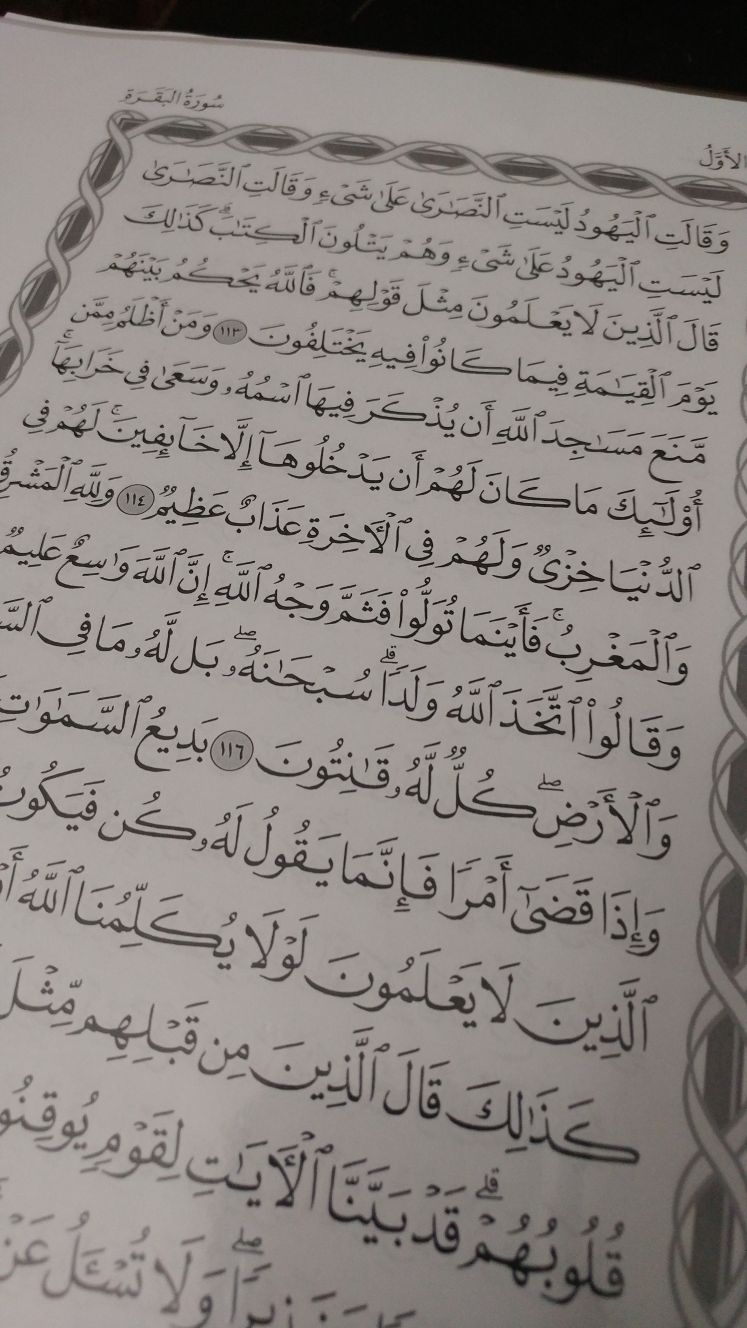 سُورَةُ البَقَرَةِ
الأَوَّلُ
وَقَالَتِ ٱلۡيَهُودُ لَيۡسَتِ ٱلنَّصَٰرَىٰ عَلَىٰ شَىۡءٖ وَقَالَتِ ٱلنَّصَٰرَىٰ
لَيۡسَتِ ٱلۡيَهُودُ عَلَىٰ شَىۡءٖ وَهُمۡ يَتۡلُونَ ٱلۡكِتَٰبَۗ كَذَٰلِكَ
قَالَ ٱلَّذِينَ لَا يَعۡلَمُونَ مِثۡلَ قَوۡلِهِمۡۚ فَٱللَّهُ يَحۡكُمُ بَيۡنَهُمۡ
يَوۡمَ ٱلۡقِيَٰمَةِ فِيمَا كَانُواْ فِيهِ يَخۡتَلِفُونَ ١١٣ وَمَنۡ أَظۡلَمُ مِمَّن
مَّنَعَ مَسَٰجِدَ ٱللَّهِ أَن يُذۡكَرَ فِيهَا ٱسۡمُهُۥ وَسَعَىٰ فِي خَرَابِهَآۚ
أُوْلَٰٓئِكَ مَا كَانَ لَهُمۡ أَن يَدۡخُلُوهَآ إِلَّا خَآئِفِينَۚ لَهُمۡ فِي
ٱلدُّنۡيَا خِزۡيٞ وَلَهُمۡ فِي ٱلۡأٓخِرَةِ عَذَابٌ عَظِيمٞ ١١٤ وَلِلَّهِ ٱلۡمَشۡرِقُ
وَٱلۡمَغۡرِبُۚ فَأَيۡنَمَا تُوَلُّواْ فَثَمَّ وَجۡهُ ٱللَّهِۚ إِنَّ ٱللَّهَ وَٰسِعٌ عَلِيمٞ
وَقَالُواْ ٱتَّخَذَ ٱللَّهُ وَلَدٗاۗ سُبۡحَٰنَهُۥۖ بَل لَّهُۥ مَا فِي
وَٱلۡأَرۡضِۖ كُلّٞ لَّهُۥ قَٰنِتُونَ ١١٦ بَدِيعُ ٱلسَّمَٰوَٰتِ
وَإِذَا قَضَىٰٓ أَمۡرٗا فَإِنَّمَا يَقُولُ لَهُۥ كُن فَيَكُونُ
ٱلَّذِينَ لَا يَعۡلَمُونَ لَوۡلَا يُكَلِّمُنَا ٱللَّهُ
كَذَٰلِكَ قَالَ ٱلَّذِينَ مِن قَبۡلِهِم مِّثۡلَ
قُلُوبُهُمۡۗ قَدۡ بَيَّنَّا ٱلۡأٓيَٰتِ لِقَوۡمٖ
وَلَا تُسۡـَٔلُ عَنۡ